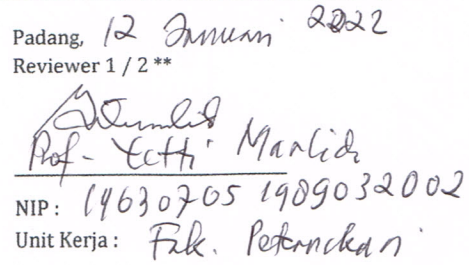 Padang, 12 Januari 2022
Reviewer 1 / 2 **
Prof. Yetti Marlida
NIP : 19630705 1989032002
Unit Kerja : Fak. Peternakan